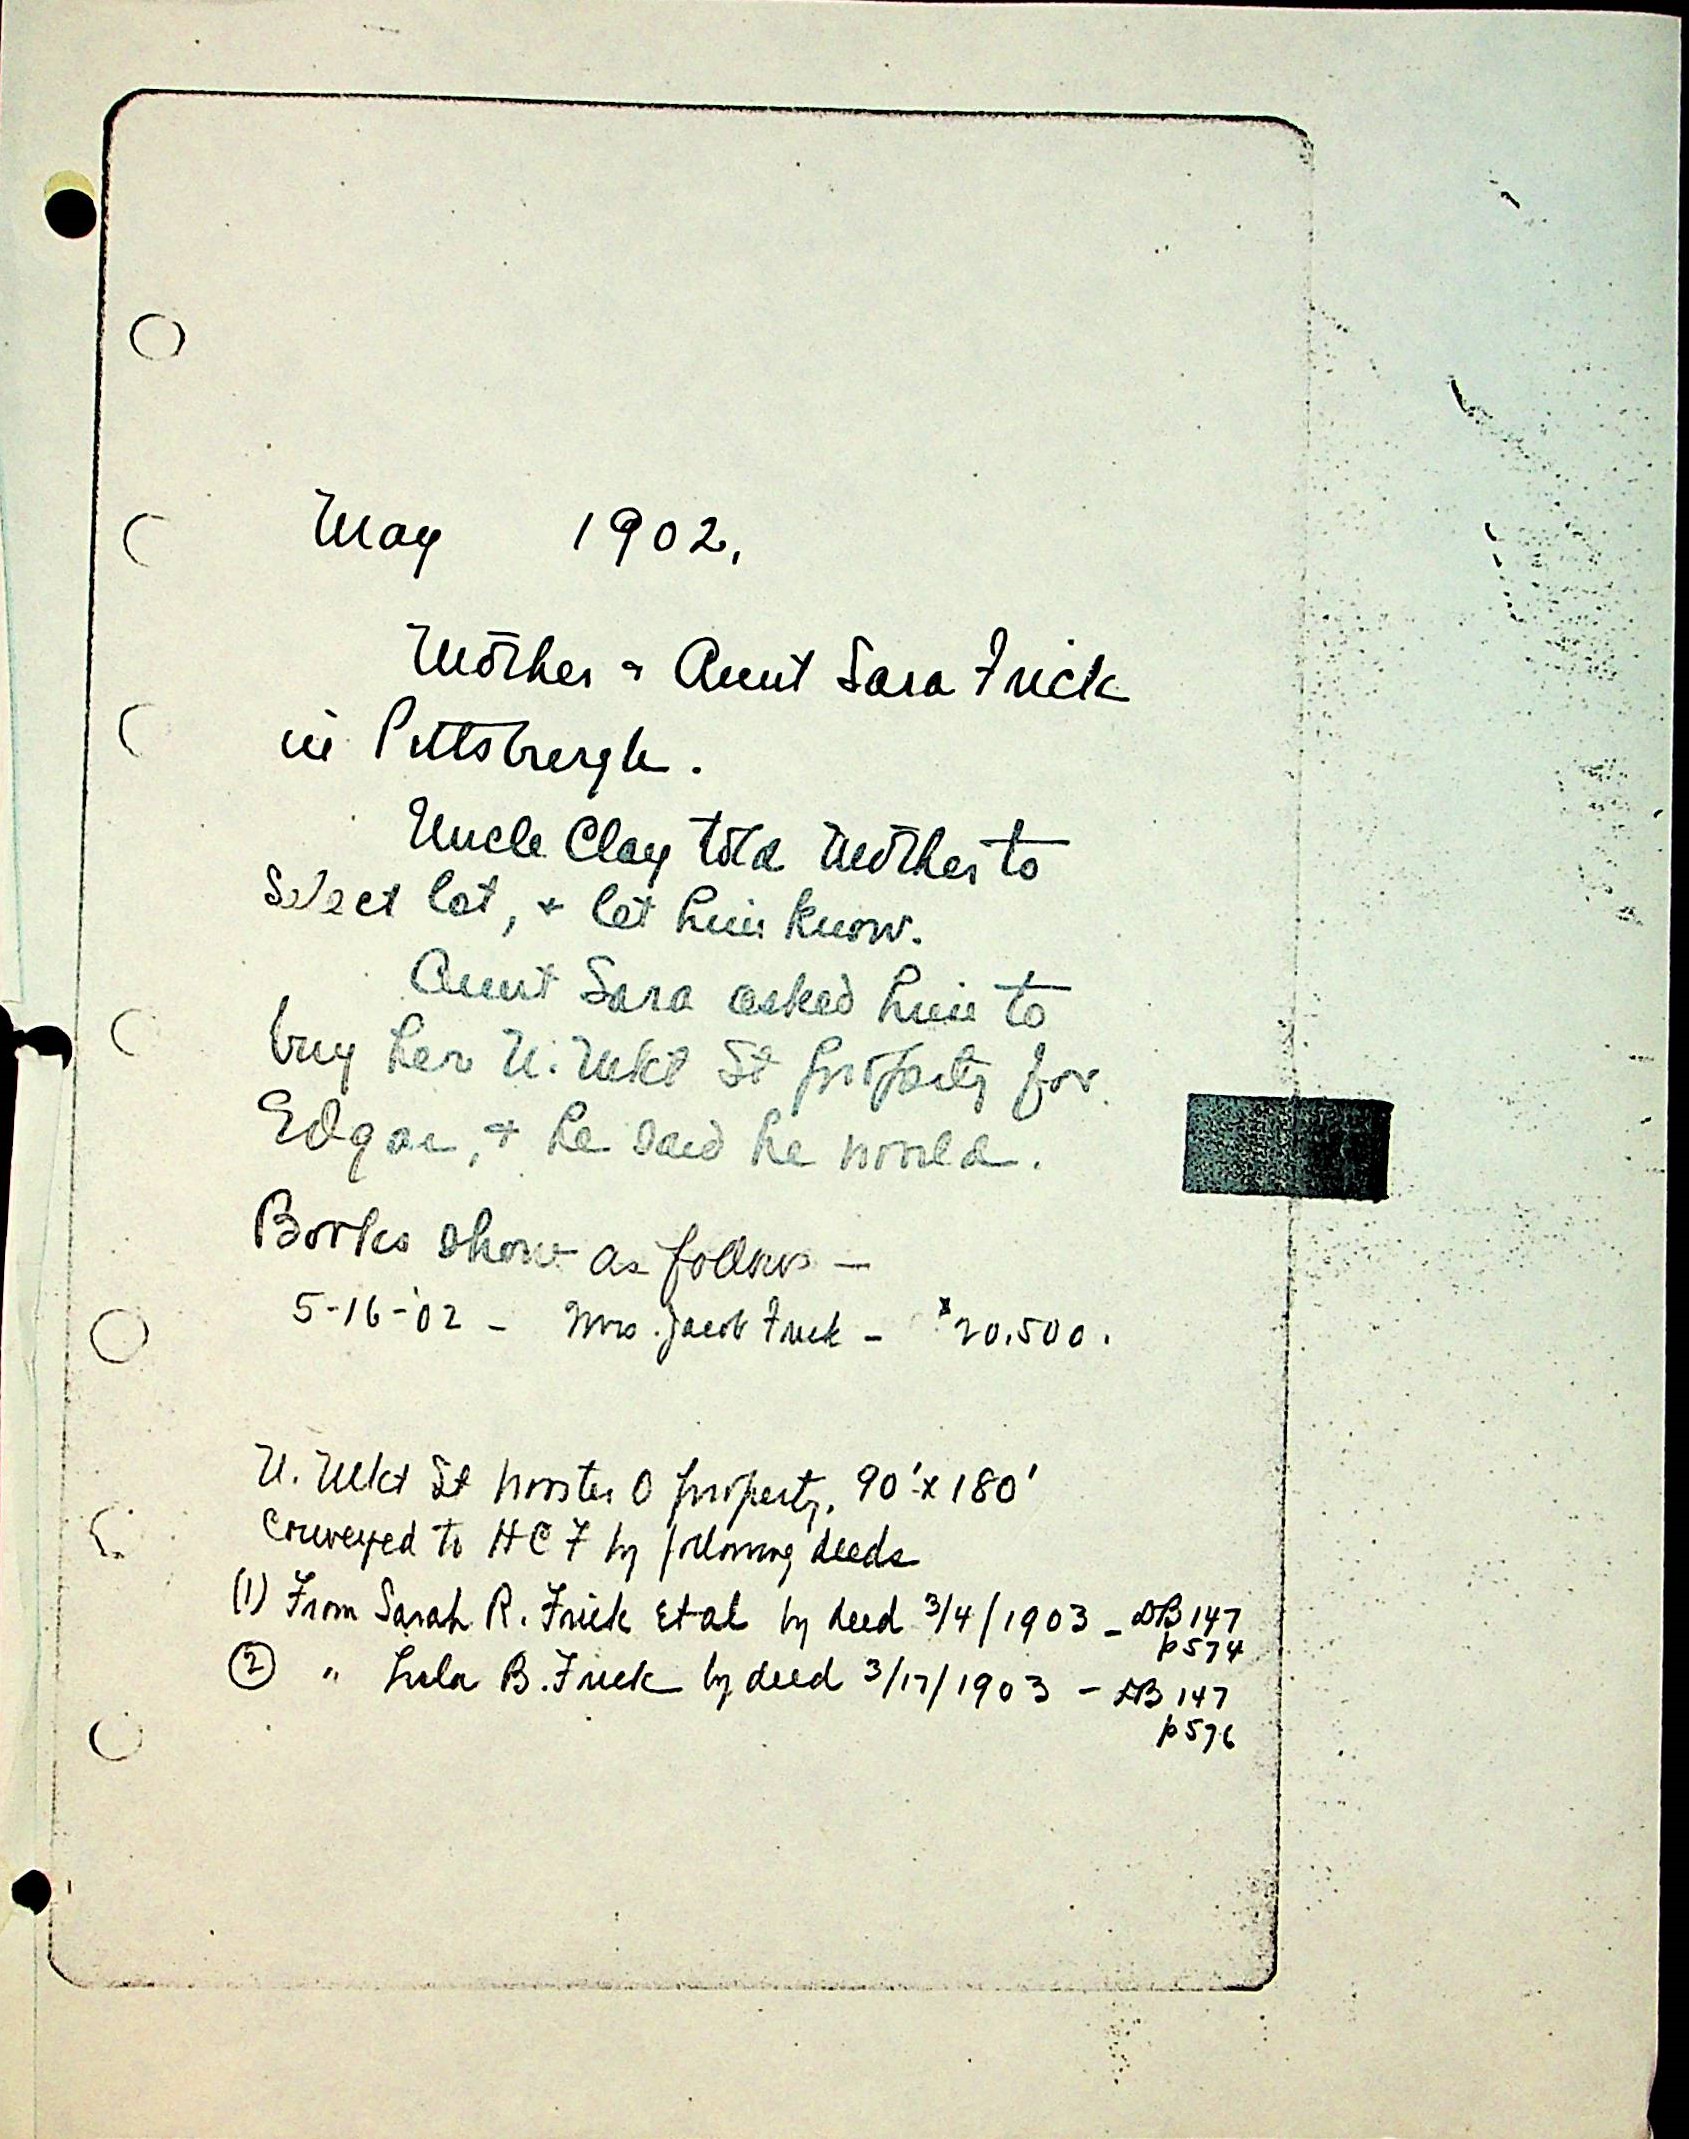 May 1902,
Mother + Aunt Sara Frick
in Pittsburgh.
Uncle Clay told Mother to
select lot, + let him know.
Aunt Sara asked him to
buy her N. Mkt St property for
Edgar, + he said he would.
Books show as follows —
5-16-'02 - Mrs. Jacob Frick - $20,500.
N. Mkt St Wooster O property, 90' x 180'
conveyed to HCF by following deeds
(1) From Sarah R. Frick et al by deed 3/4/1903 - DB 147
p 574
(2) " Lula B. Frick by deed 3/17/1903 - DB 147
p 576